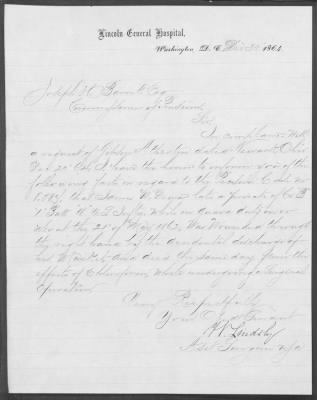 Lincoln General Hospital,
Washington, D.C. Dec 1864.
Joseph H Barrett Esq
Commissioner of Pensions
Sir
In compliance with
a request of dated Newark Ohio
Dec 20 I have the honor to inform you of the
following facts in regard to the Pension Claim no
that James W. late a private of Co
1 Batt U.S. Infty when on Guard duty on or
about the 21st of May 1862, was wounded through
the right hand by the accidental discharge of
his Musket and died the same day from the
effects of Chloroform while undergoing a Surgical
Operation
Very Respectfully
Your Obdt Servant
Lindsly
Asst Surgeon